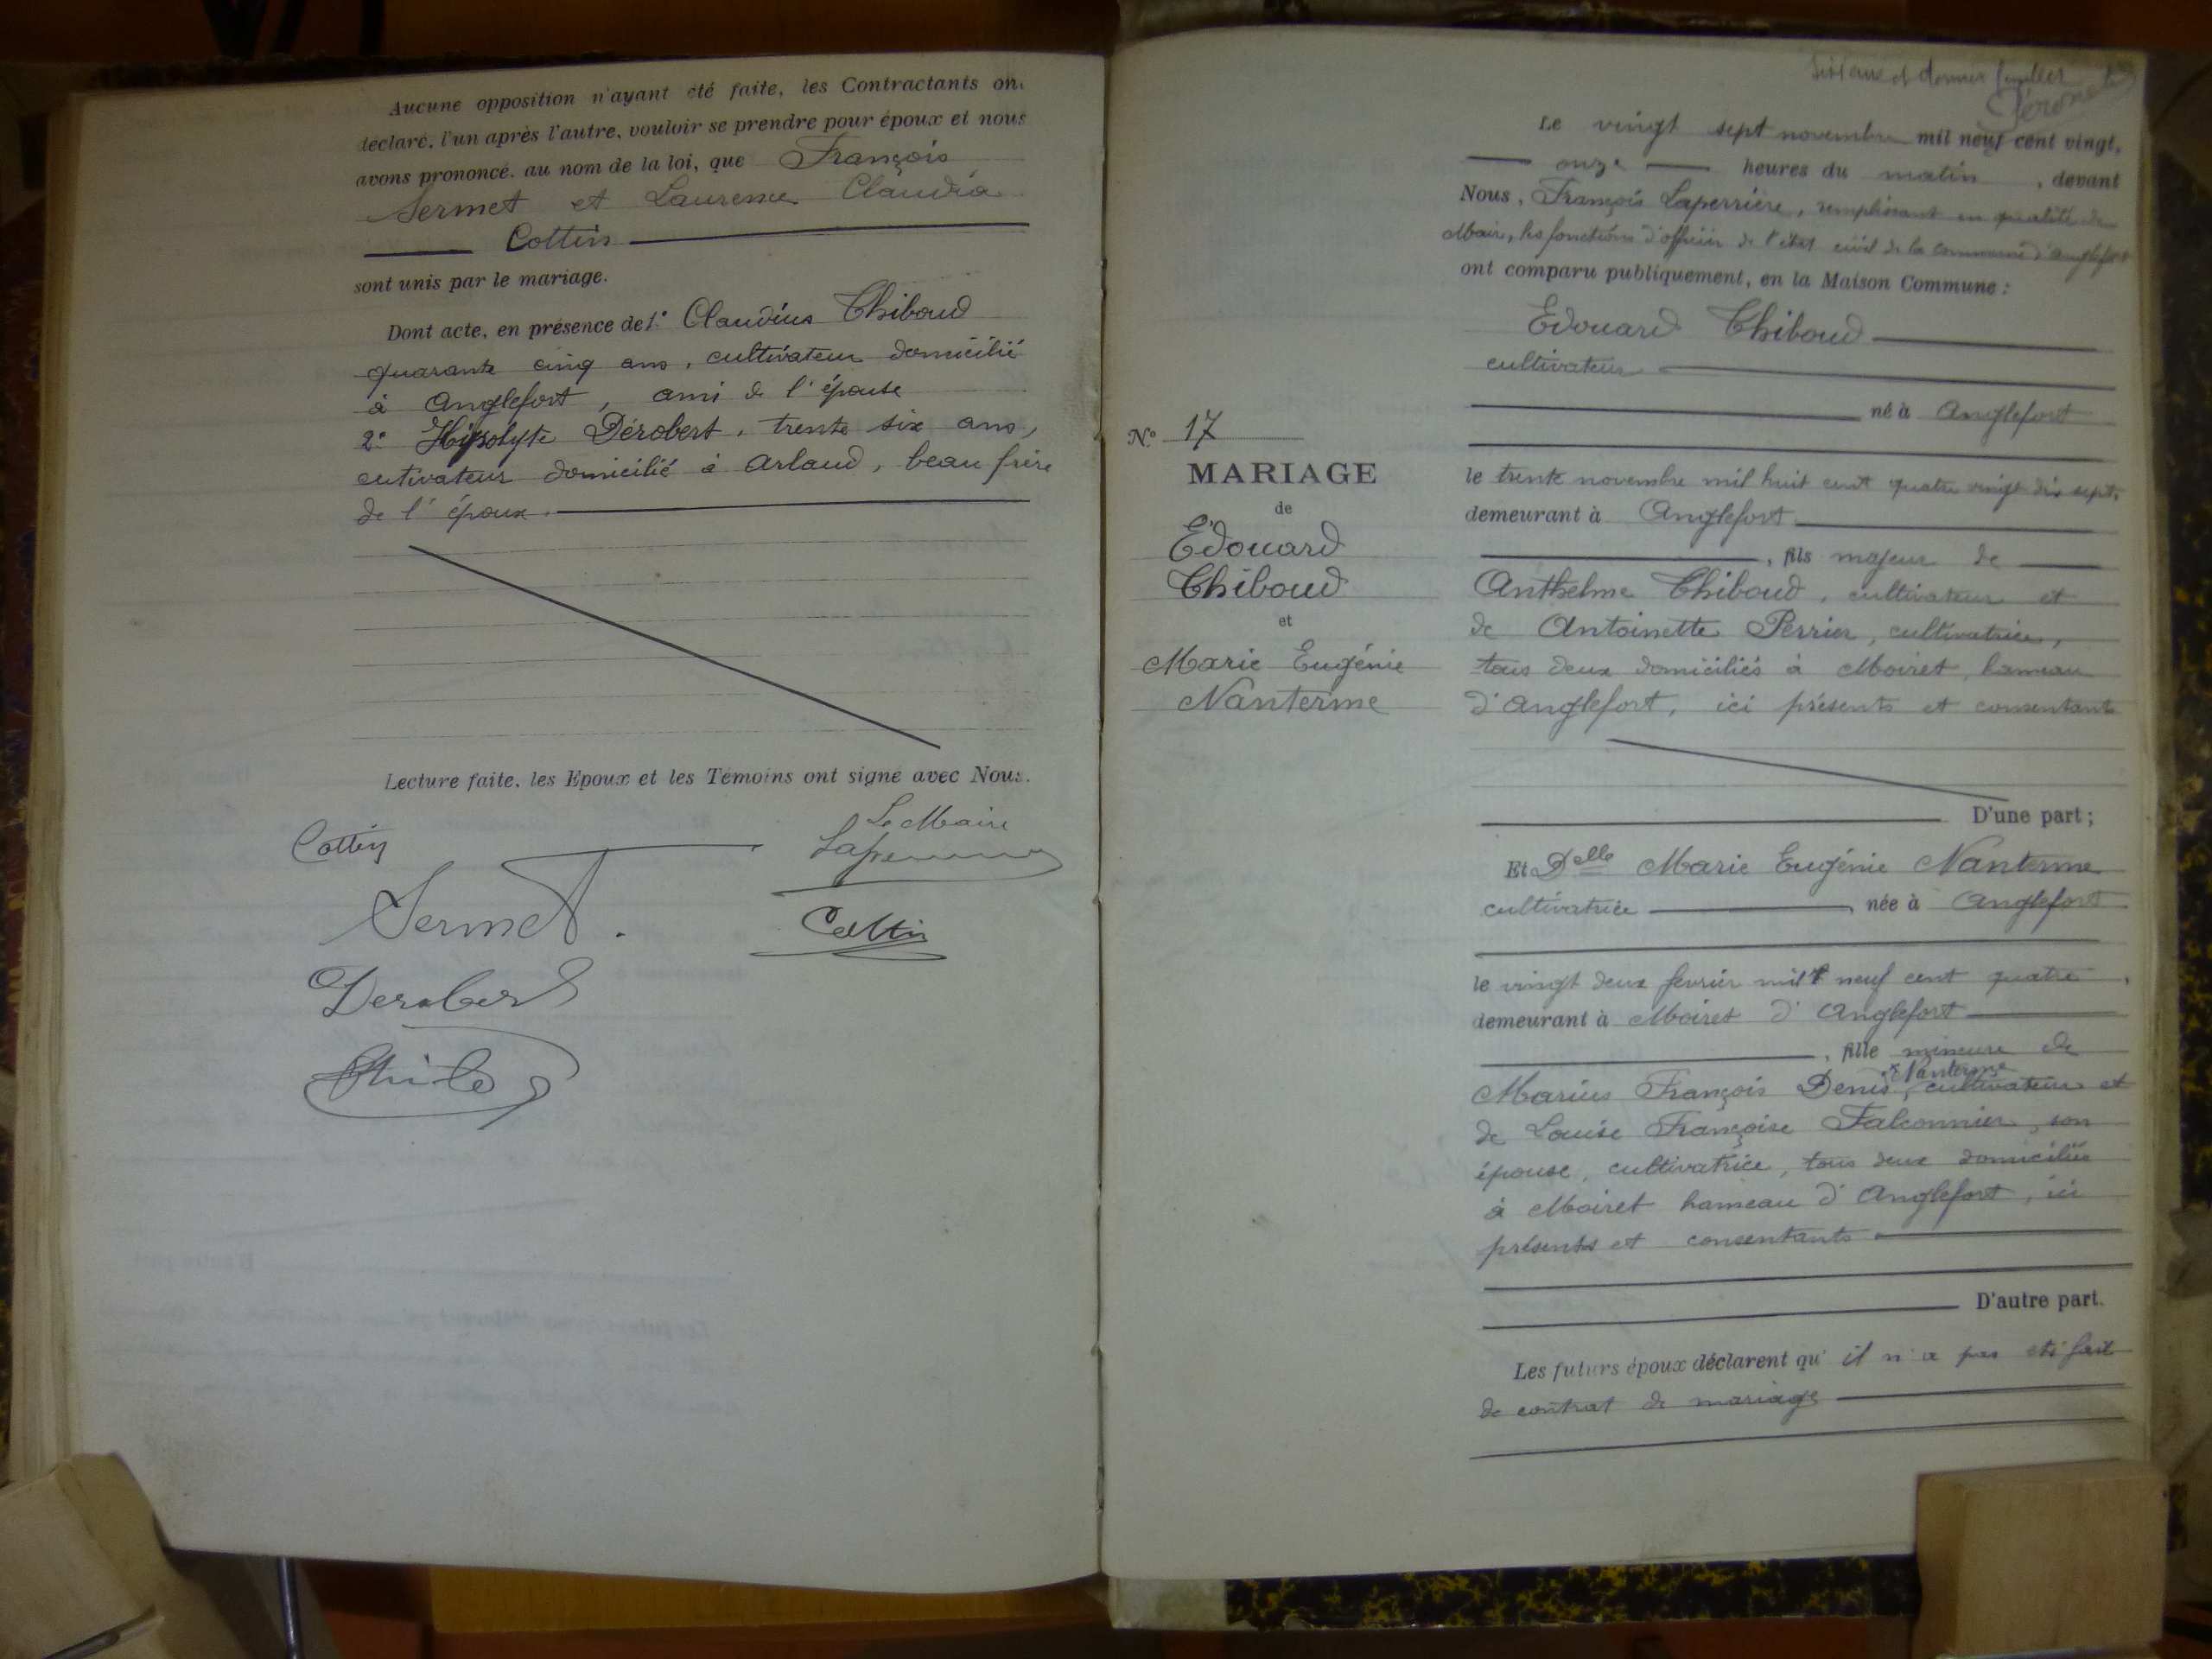 Aucune opposition n'ayant été faite, les Contractants ont
déclaré, l'un après l'autre, vouloir se prendre pour époux et nous
avons prononcé, au nom de la loi, que François
Sermet et Laurence Claudia
Cottin
sont unis par le mariage.
Dont acte, en présence de 1° Claudius Thiboud
quarante cinq ans, cultivateur domicilié
à Anglefort, ami de l'épouse
2° Hippolyte Dérobert, trente six ans,
cutivateur domicilié à Arlaud, beau frère
de l'époux.
Lecture faite, les Epoux et les Témoins ont signé avec Nous.
Le Maire
Cottin
Sermet.
Cottin
Derobert
N° 17
MARIAGE
de
Edouard
Thiboud
et
Marie Eugénie
Nanterme
Le vingt sept novembre mil neuf cent vingt,
onze heures du matin, devant
Nous, François Laperrière, remplissant en qualité de
Maire, les fonctions d'officier de l'état civil de la commune d'Anglefort
ont comparu publiquement, en la Maison Commune :
Edouard Thiboud
cultivateur
né à Anglefort
le trente novembre mil huit cent quatre vingt dix sept,
demeurant à Anglefort
, fils majeur de
Anthelme Thiboud, cultivateur et
de Antoinette Perrier, cultivatrice,
tous deux domiciliés à Moiret, hameau
d'Anglefort, ici présents et consentants
D'une part ;
Et Delle Marie Eugénie Nanterme
cultivatrice née à Anglefort
le vingt deux fevrier mil neuf cent quatre,
demeurant à Moiret d'Anglefort
, fille mineure de
x Nanterme
Marius François Denis x, cultivateur et
de Louise Françoise Falconnier, son
épouse, cultivatrice, tous deux domiciliés
à Moiret hameau d'Anglefort, ici
présents et consentants
D'autre part.
Les futurs époux déclarent qu'il n'a pas été fait
de contrat de mariage